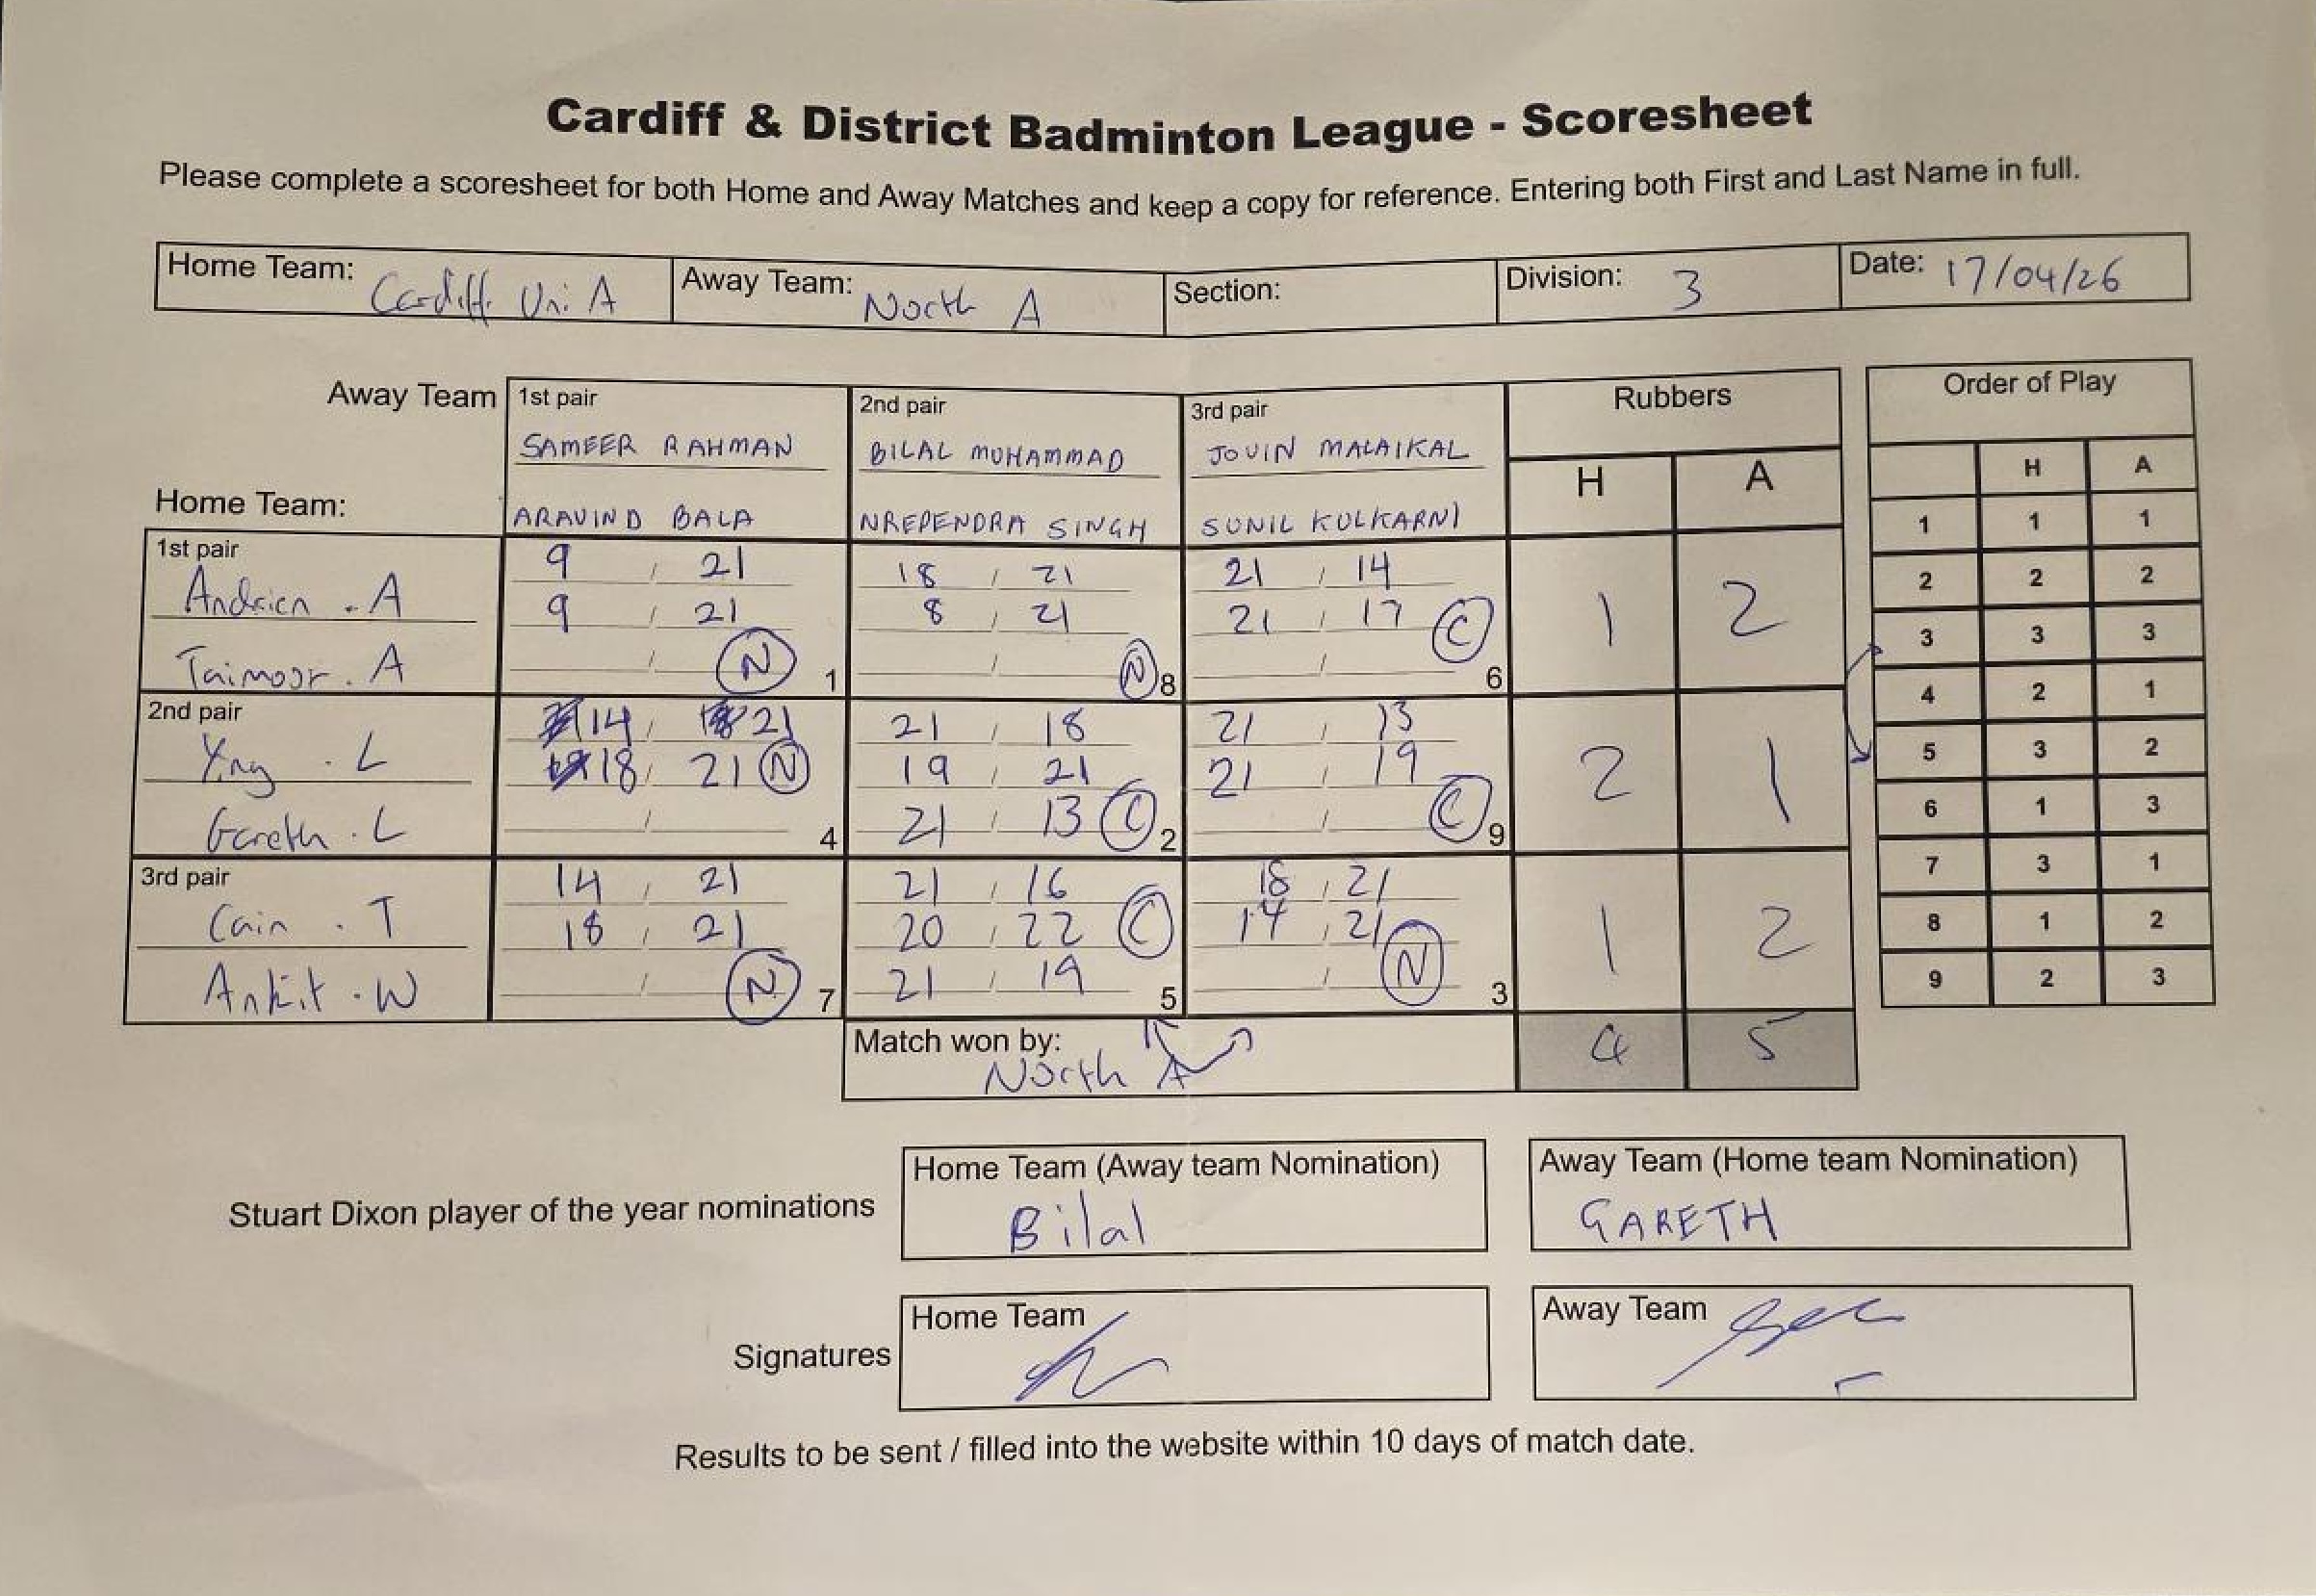 Cardiff & District Badminton League - Scoresheet
Please complete a scoresheet for both Home and Away Matches and keep a copy for reference. Entering both First and Last Name in full.
Home Team: Cardiff Uni A Away Team: North A Section: Division: 3 Date: 17/04/26
Away Team 1st pair 2nd pair 3rd pair Rubbers Order of Play
SAMEER RAHMAN BILAL MUHAMMAD JOVIN MALAIKAL
H A H A
Home Team: ARAVIND BALA NREPENDRA SINGH SUNIL KULKARNI
1 1 1
1st pair 9 / 21 18 / 21 21 / 14
Andrien . A 9 / 21 8 / 21 21 / 17 C 1 2
2 2 2
Taimoor . A / N 1 / N 8 / 6
3 3 3
2nd pair 14 / 21 21 / 18 21 / 13
4 2 1
Yng . L 18 / 21 N 19 / 21 21 / 19 2 1
5 3 2
Gareth . L / 4 21 / 13 C 2 / C 9
6 1 3
3rd pair 14 / 21 21 / 16 18 / 21
7 3 1
Cain . T 18 / 21 20 / 22 C 17 / 21 1 2
8 1 2
Ankit . W / N 7 21 / 19 5 / N 3
9 2 3
Match won by: North A 4 5
Stuart Dixon player of the year nominations
Home Team (Away team Nomination) Away Team (Home team Nomination)
Bilal GARETH
Signatures Home Team Away Team
Results to be sent / filled into the website within 10 days of match date.